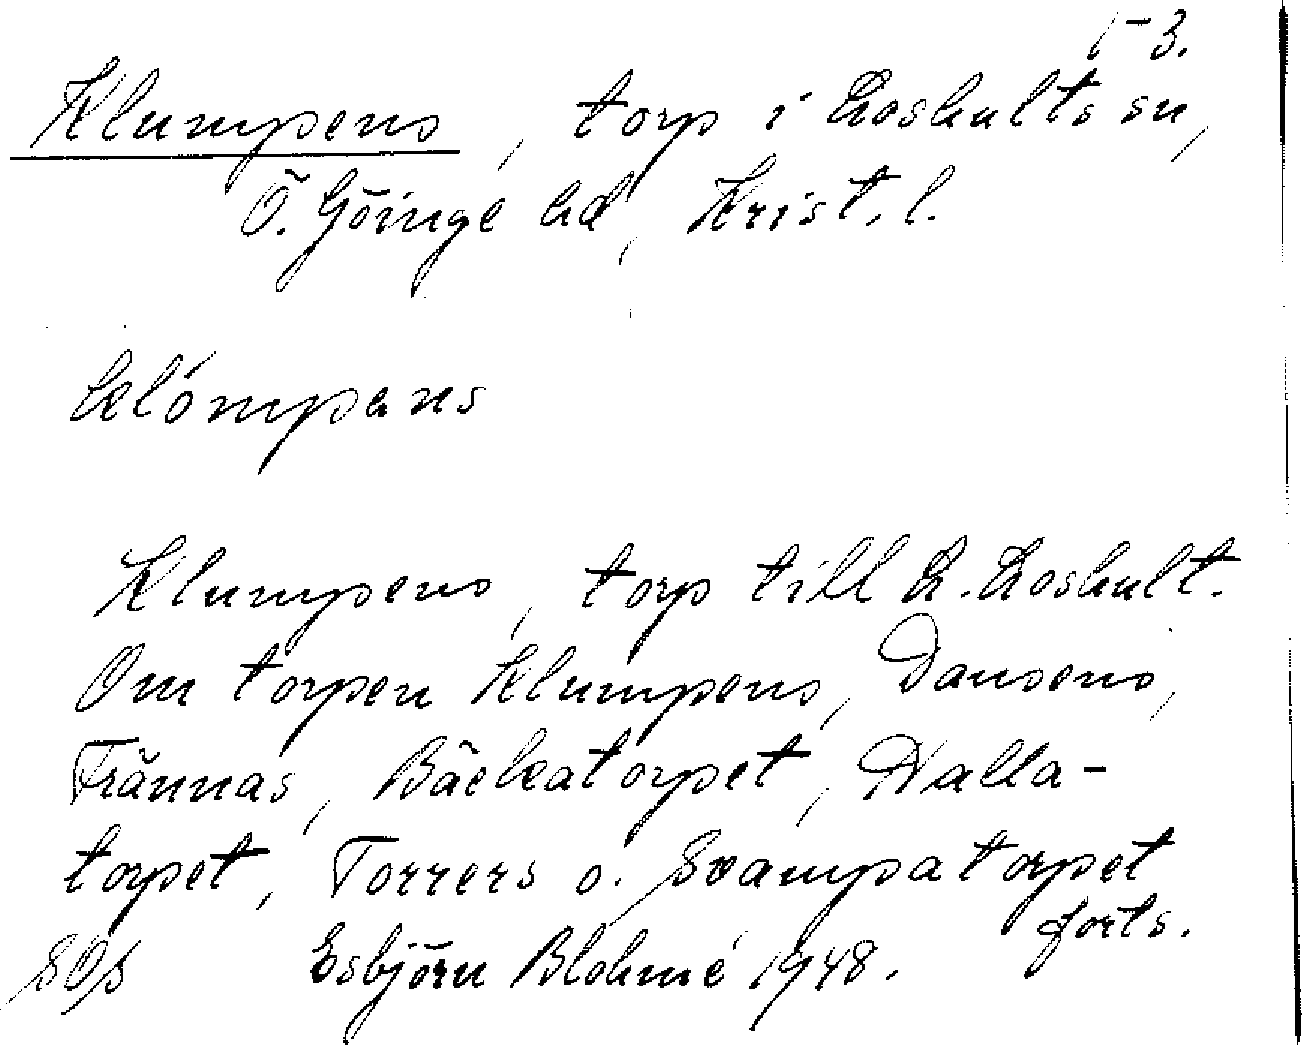 1-3.
Klumpens, torp i Loshults sn,
Ö. Göinge hd, Krist. l.
klómpens
Klumpens, torp till L. Loshult.
Om torpen Klumpens, Dansens,
Frännas, Bäckatorpet, Halla-
torpet, Torrers o. Svampatorpet
forts.
Esbjörn Blohmé 1948.